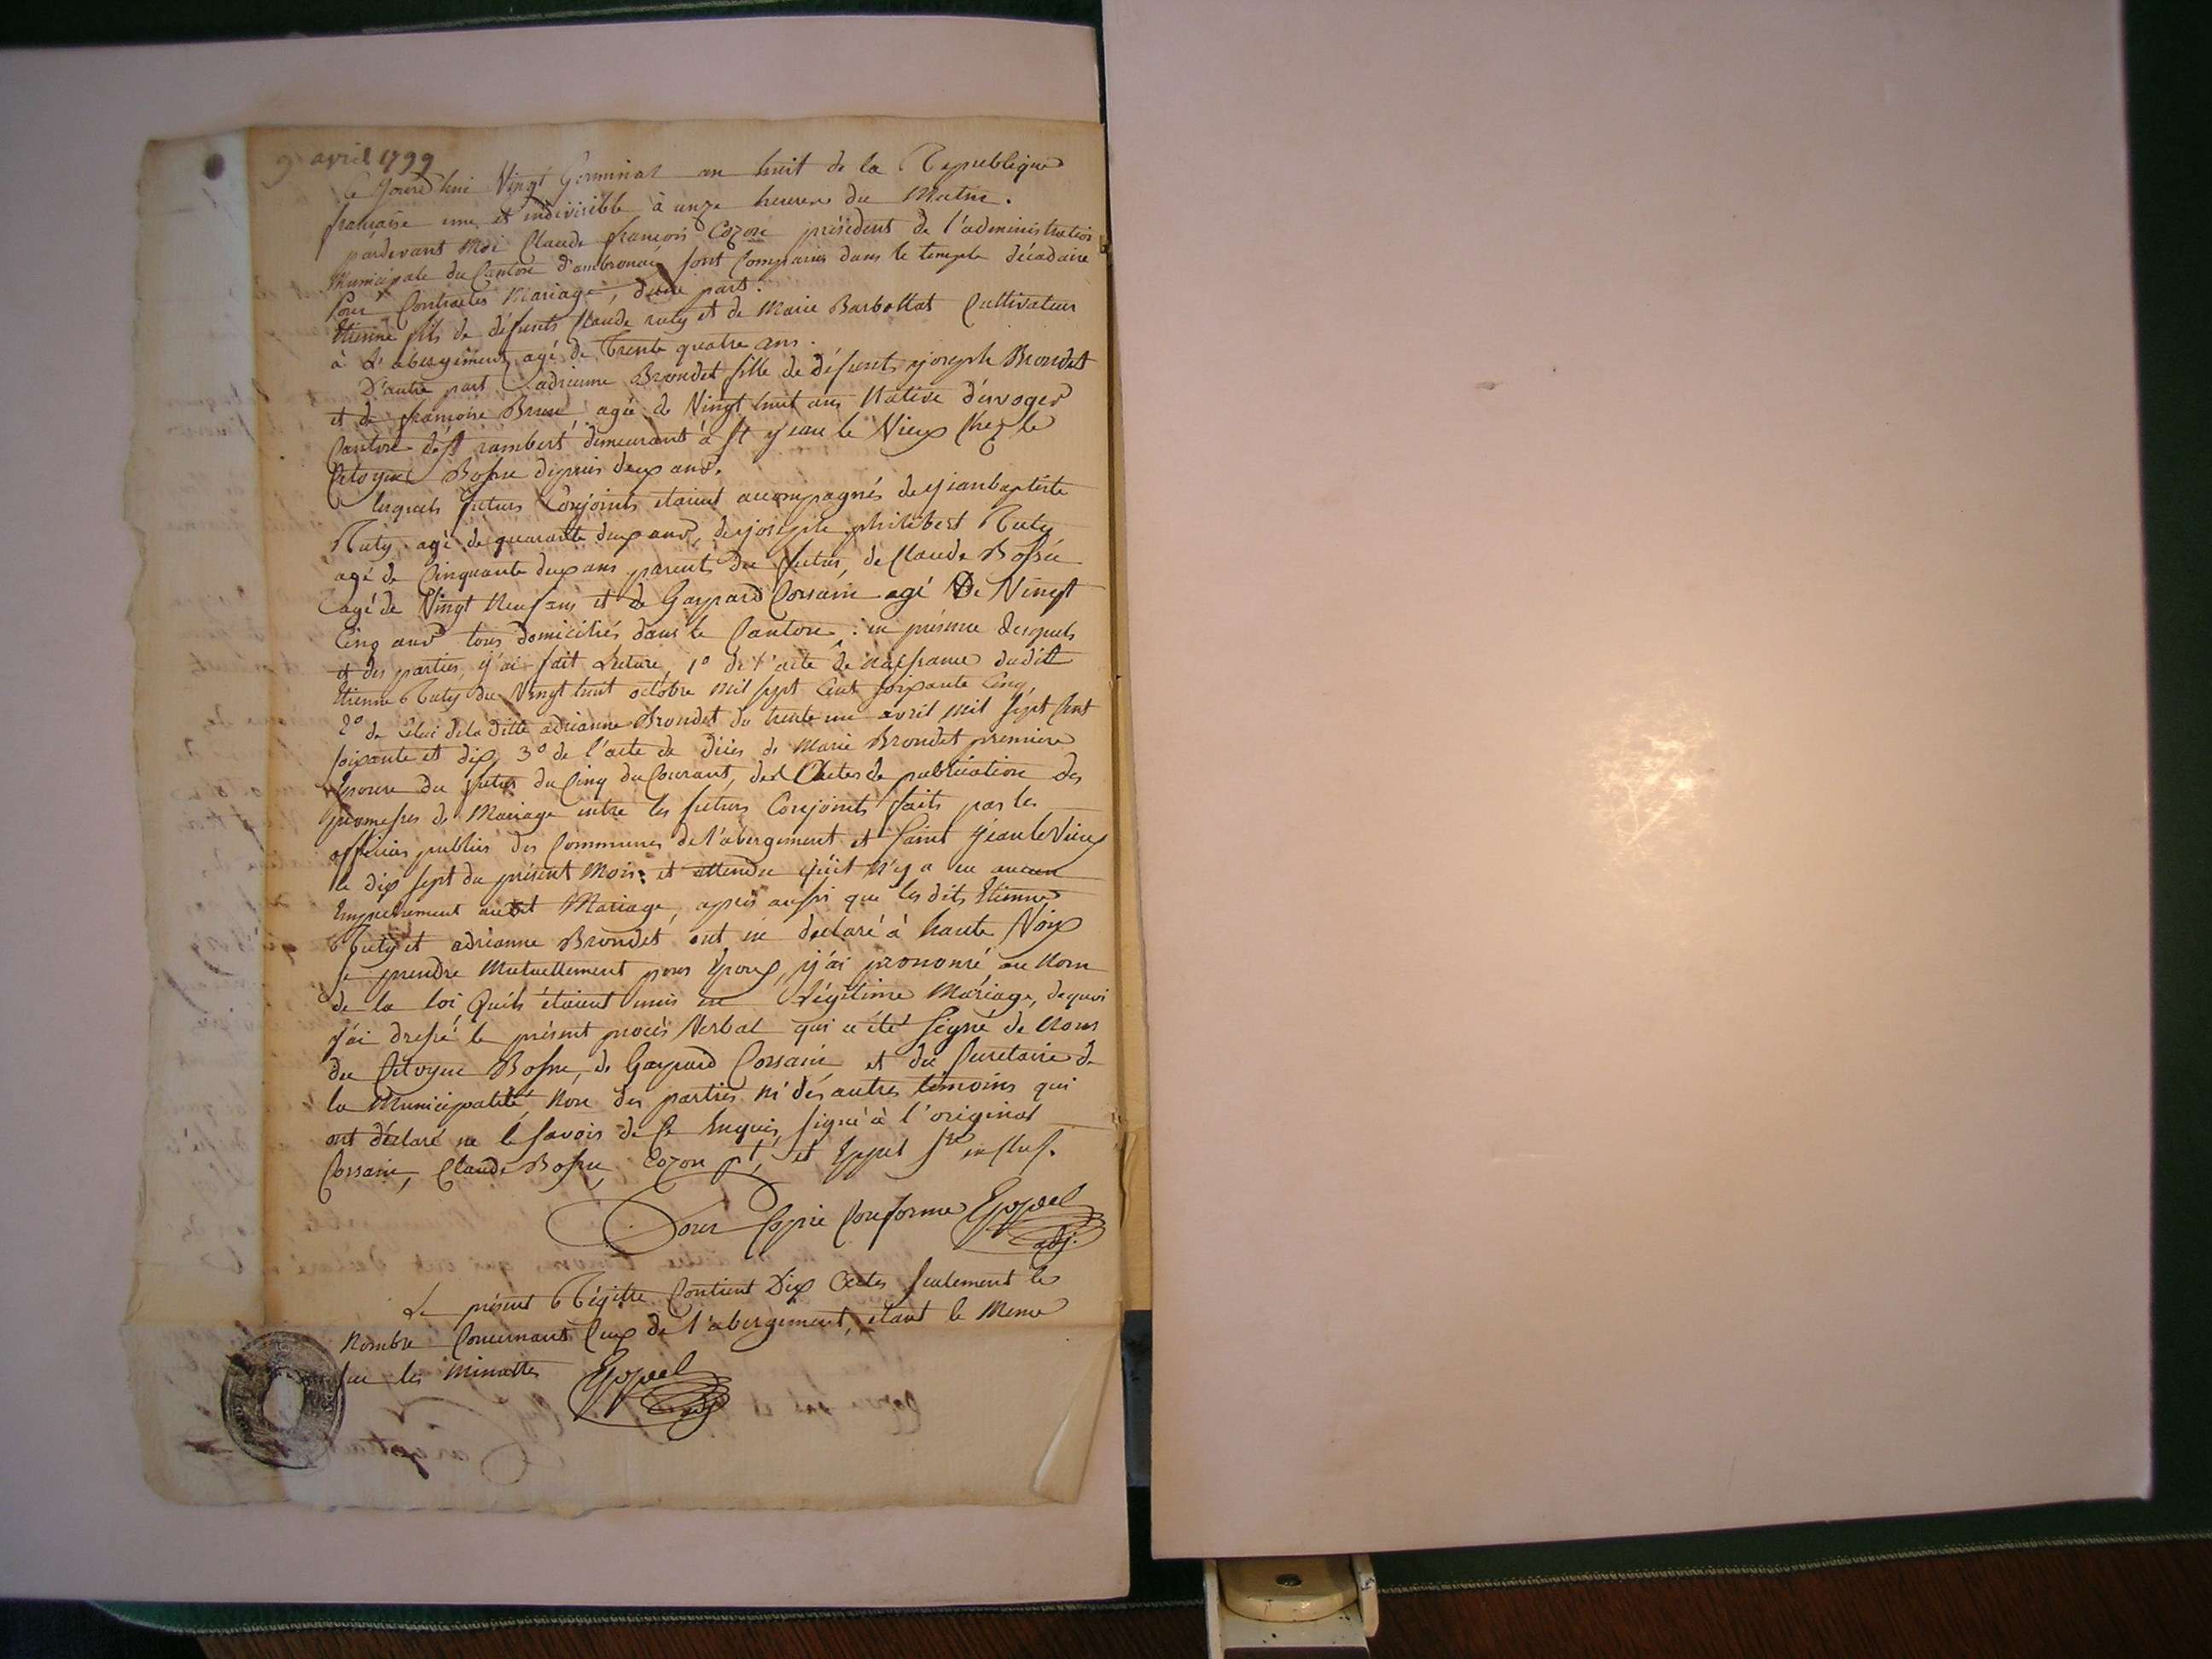 9 avril 1799
Ce Jourd'hui Vingt Germinal an huit de la Republique
française une et indivisible à onze heures du Matin.
pardevant Moi Claude françois Cozon président de l'administration
Municipale du Canton d'ambronay sont Comparus dans le temple décadaire
Pour Contracter Mariage, d'une part.
Etienne fils de défunts Claude ruty et de Marie Barbollat Cultivateur
à L'abergement, agé de Trente quatre ans.
D'autre part adrienne Brondet fille de défunt joseph Brondet
et de françoise Brun agée de Vingt huit ans Native d'evoges
Canton de St rambert demeurant à St jean le Vieux Chez le
Citoyen Bossu depuis deux ans.
lesquels futurs Conjoints etaient accompagnés de jeanbaptiste
Ruty agé de quarante deux ans, de joseph philibert Ruty
agé de Cinquante deux ans parents du futur, de Claude Bossu
agé de Vingt Neuf ans et de Gaspard Corsain agé De Vingt
Cinq ans tous domiciliés dans le Canton : en présence desquels
et des parties, j'ai fait Lecture, 1° de l'acte de Naissance dudit
Etienne Ruty du Vingt huit octobre Mil sept Cent soixante Cinq,
2° de Celui de la ditte adrianne Brondet du trente un avril Mil Sept Cent
soixante et dix, 3° de l'acte de décès de Marie Brondet premiere
Epouse du futur du Cinq du Courant, des Actes de publication des
promesses de Mariage entre les futurs Conjoints faits par les
officiers publics des Communes de l'abergement et Saint jean le Vieux
le dix sept du présent Mois: et attendu qu'il N'y a eu aucun
Empechement audit Mariage, après aussi que les dits Etienne
Ruty et adrianne Brondet ont eu declaré à haute Voix
se prendre Mutuellement pour Epoux, j'ai prononcé au Nom
de la loi, Qu'ils étaient unis en Légitime Mariage, de quoi
j'ai dressé le présent procès Verbal qui a été Signé de Nous
du Citoyen Bossu, de Gaspard Corsain et du Secretaire de
la Municipalité, Non des parties ni des autres témoins qui
ont déclaré ne le savoir de Ce Enquis, signé à l'original
Corsain, Claude Bossu, Cozon pt, et Goppel
Pour Copie Conforme Goppel
adj.
Le présent Régistre Contient Dix Actes Seulement le
Nombre Concernant Ceux de l'abergement, etant le Meme
sur les Minuttes Goppel
adj